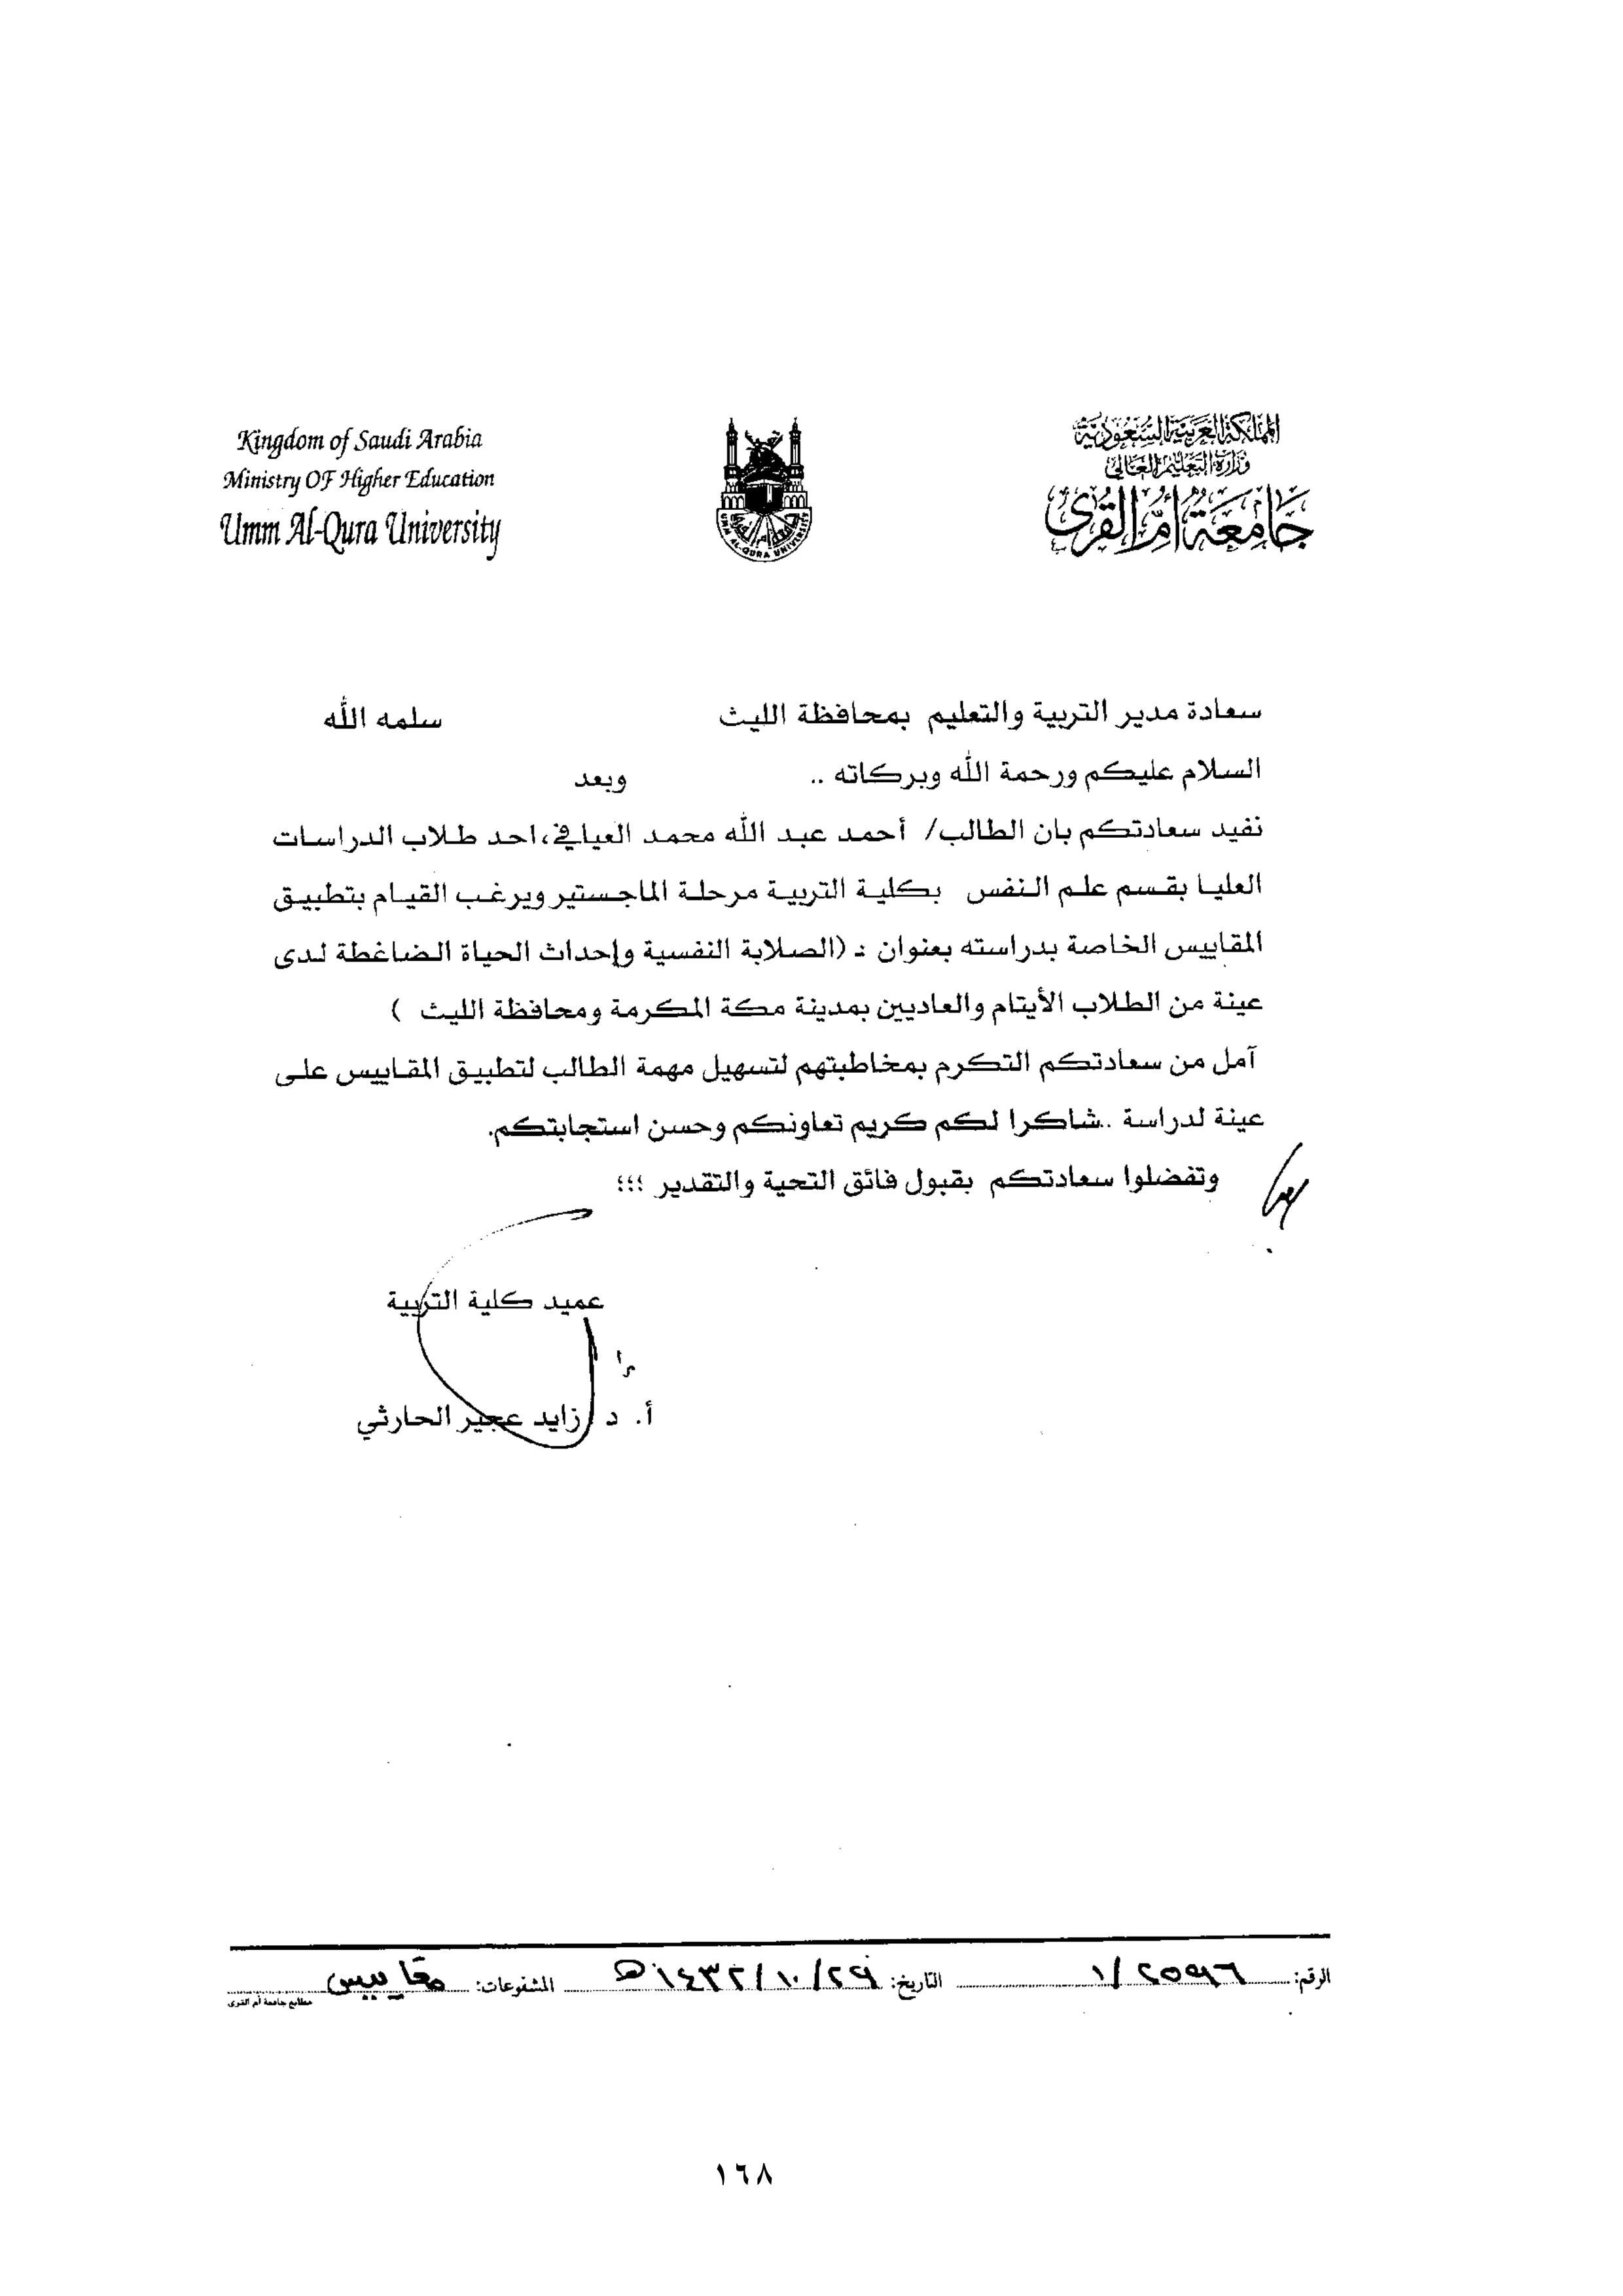 Kingdom of Saudi Arabia
Ministry OF Higher Education
Umm Al-Qura University
المملكة العربية السعودية
وزارة التعليم العالي
جامعة أم القرى
سعادة مدير التربية والتعليم بمحافظة الليث سلمه الله
السلام عليكم ورحمة الله وبركاته .. وبعد
نفيد سعادتكم بان الطالب/ أحمد عبد الله محمد العيافي، احد طلاب الدراسات
العليا بقسم علم النفس بكلية التربية مرحلة الماجستير ويرغب القيام بتطبيق
المقاييس الخاصة بدراسته بعنوان : (الصلابة النفسية وإحداث الحياة الضاغطة لدى
عينة من الطلاب الأيتام والعاديين بمدينة مكة المكرمة ومحافظة الليث )
آمل من سعادتكم التكرم بمخاطبتهم لتسهيل مهمة الطالب لتطبيق المقاييس على
عينة لدراسة ..شاكرا لكم كريم تعاونكم وحسن استجابتكم.
وتفضلوا سعادتكم بقبول فائق التحية والتقدير ؛؛؛
عميد كلية التربية
أ. د / زايد عجير الحارثي
الرقم: التاريخ: ٢٩/١٠/١٤٣٢هـ المشفوعات: مقاييس
مطابع جامعة أم القرى
١٦٨